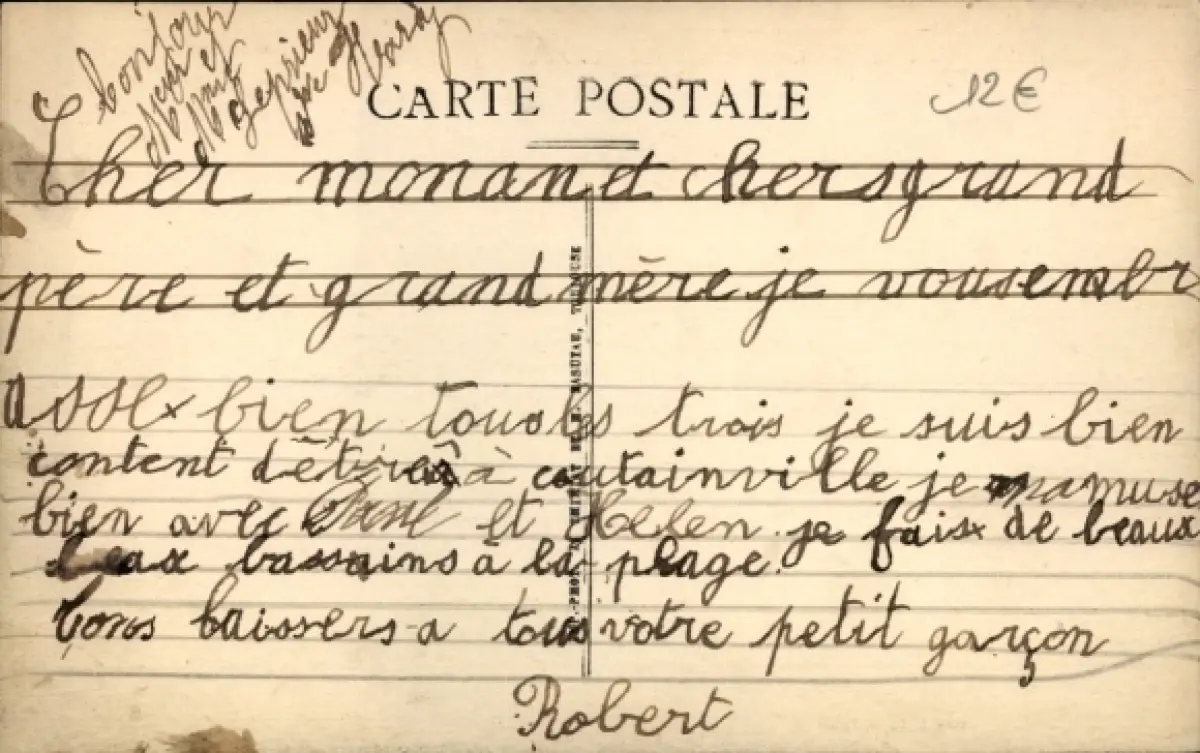 bonjour
Mr et
Mme
CARTE POSTALE
12 €
Cher monan et chers grand
père et grand mère je vous embr
asse x bien tous les trois je suis bien
content d'être à coutainville je mamuse
bien avec et Helen je fais de beaux
beax bassains à la plage.
bons baissers a tous votre petit garçon
Robert
TOULOUSE